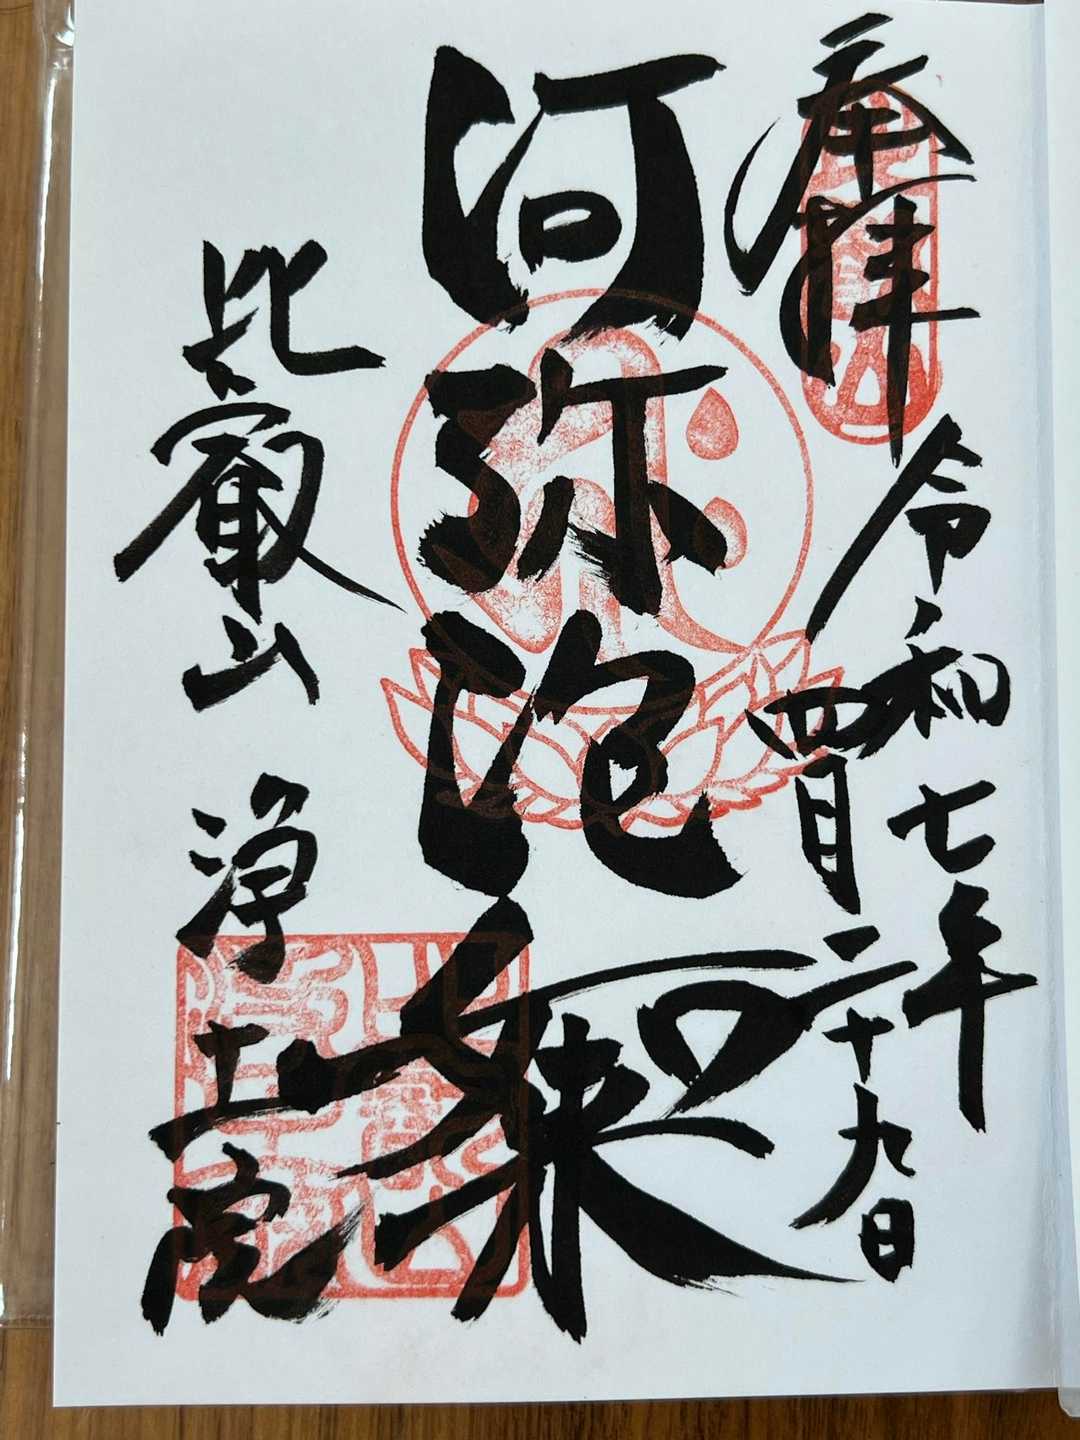 奉拝
令和七年
四月二十九日
阿弥陀如来
比叡山
浄土院